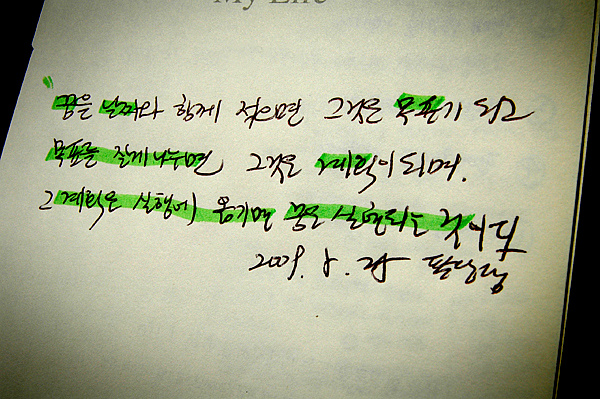 My Life
꿈을 날짜와 함께 적으면 그것은 목표가 되고
목표를 잘게 나누면 그것은 계획이 되며.
그 계획을 실행에 옮기면 꿈은 실현되는 것이다
2009. 8.